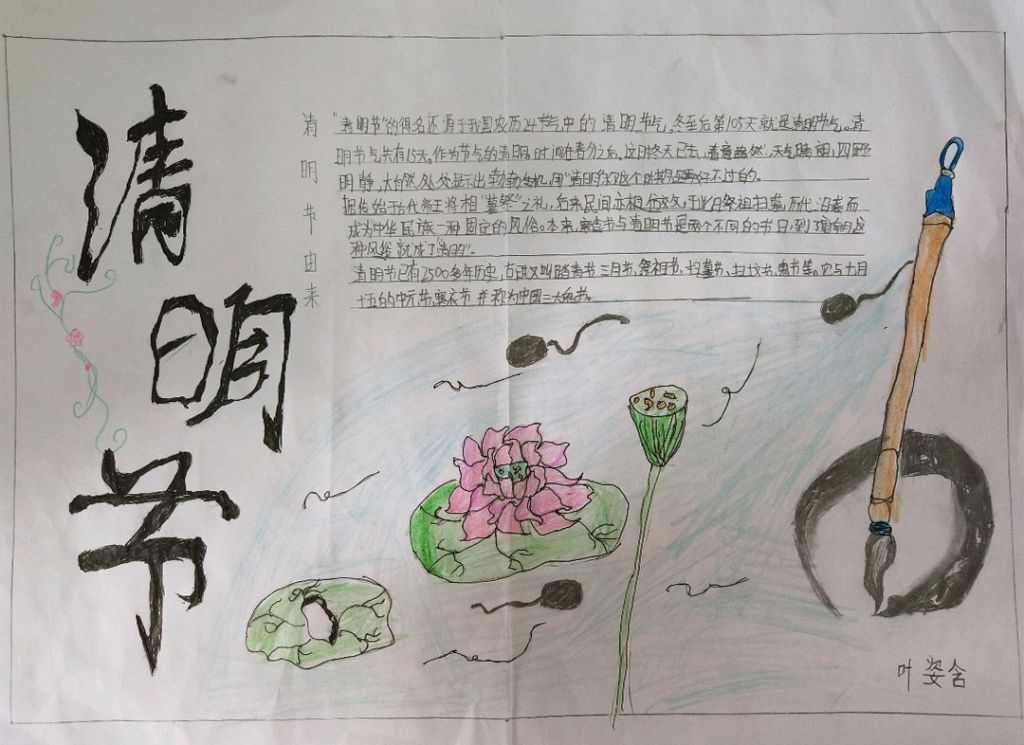 清明节
清明节由来
"清明节"的得名还源于我国农历24节气中的清明节气。冬至后第105天就是清明节气。清
明节气共有15天。作为节气的清明，时间在春分之后。这时冬天已去，春意盎然，天气晴朗，四野
明静，大自然处处显示出勃勃生机。用"清明"称这个时期是再好不过的。
据传始于古代帝王将相"墓祭"之礼，后来民间亦相仿效，于此日祭祖扫墓，历代沿袭而
成为中华民族一种固定的风俗。本来，寒食节与清明节是两个不同的节日，到了唐朝
种风俗就成了"清明"。
清明节已有2500多年历史，又叫踏青节、三月节、祭祖节、扫墓节、扫坟节、鬼节等。它与七月
十五的中元节、寒衣节并称为中国三大鬼节。
叶姿含